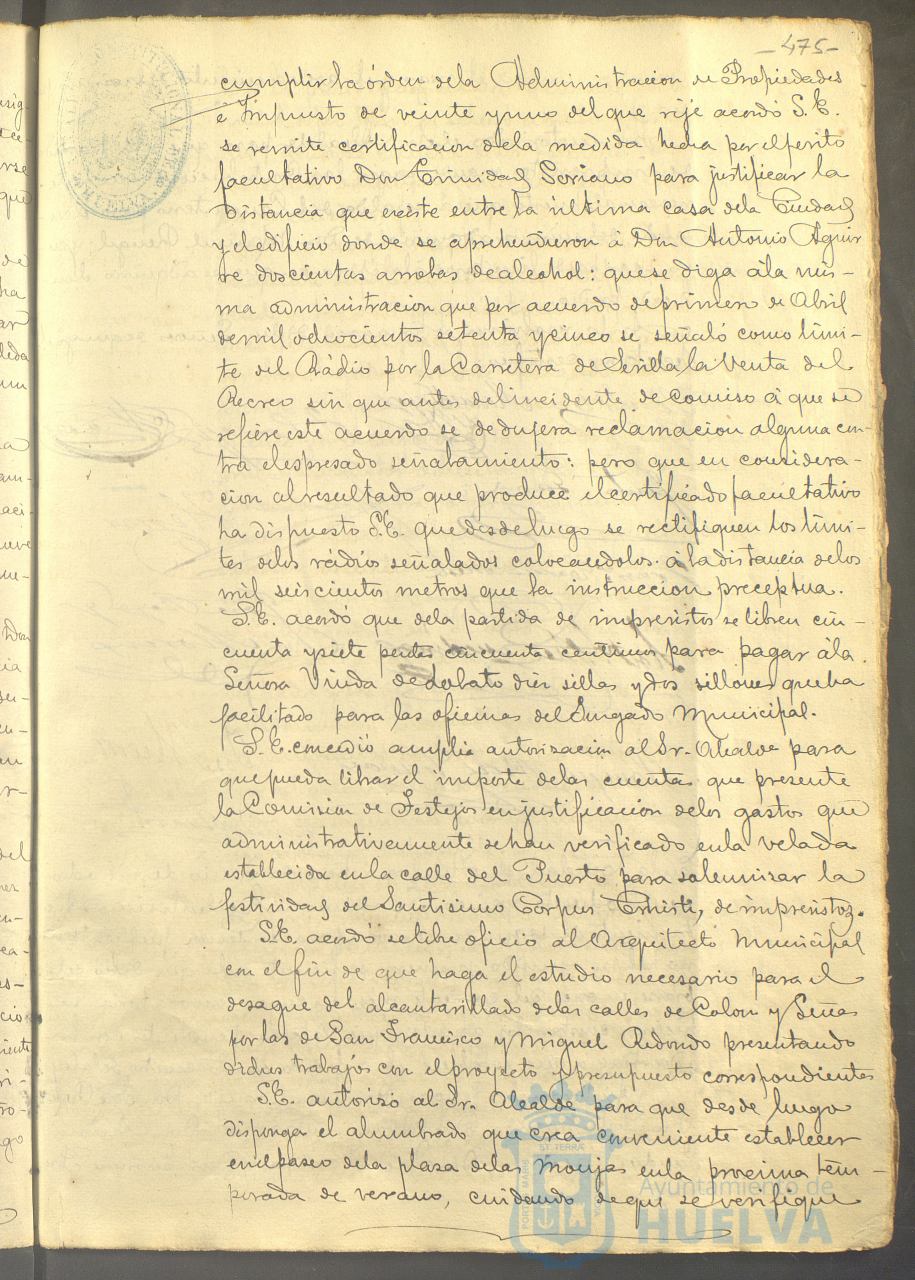 -475-
cumplir la órden dela Administracion de Propiedades
é Impuesto de veinte y uno del que rije acordó S.E.
se remite certificacion dela medida hecha por el perito
facultativo Don Trinidad Soriano para justificar la
distancia que existe entre la última casa dela Ciudad
y el edificio donde se aprehendieron á Don Antonio Aguir
re doscientas arrobas de alcohol: que se diga á la mis-
ma administracion que por acuerdo de primero de Abril
de mil ochocientos setenta y cinco se señaló como limi-
te del Rádio por la Carretera de Sevilla la Venta del
Recreo sin que antes del incidente de comiso á que se
refiere este acuerdo se dedujera reclamacion alguna con-
tra el espresado señalamiento: pero que en considera-
cion al resultado que produce el certificado facultativo
ha dispuesto S.E. que desde luego se rectifiquen los limi-
tes delos rádios señalados colocandolos á la distancia delos
mil seiscientos metros que la instruccion preceptua.
S.E. acordó que dela partida de imprevistos se libren cin-
cuenta y siete pesetas cincuenta centimos para pagar á la
Señora Viuda de diez sillas y dos sillones que ha
facilitado para las oficinas del Juzgado Municipal.
S.E. concedió amplia autorizacion al Sr. Alcalde para
que pueda librar el importe delas cuentas que presente
la Comision de Festejos en justificacion delos gastos que
administrativamente se han verificado en la velada
establecida en la calle del Puerto para solemnizar la
festividad del Santisimo Corpus Christi, de imprevistos.
S.E. acordó se libre oficio al Arquitecto Municipal
con el fin de que haga el estudio necesario para el
desague del alcantarillado delas calles de Colon y Señas
por las de San Francisco y Miguel Redondo presentando
dichos trabajos con el proyecto y presupuesto correspondientes
S.E. autorizó al Sr. Alcalde para que desde luego
disponga el alumbrado que crea conveniente establecer
en el paseo dela plaza delas Monjas en la proxima tem-
porada de verano, cuidando de que se verifique
Ayuntamiento de
HUELVA